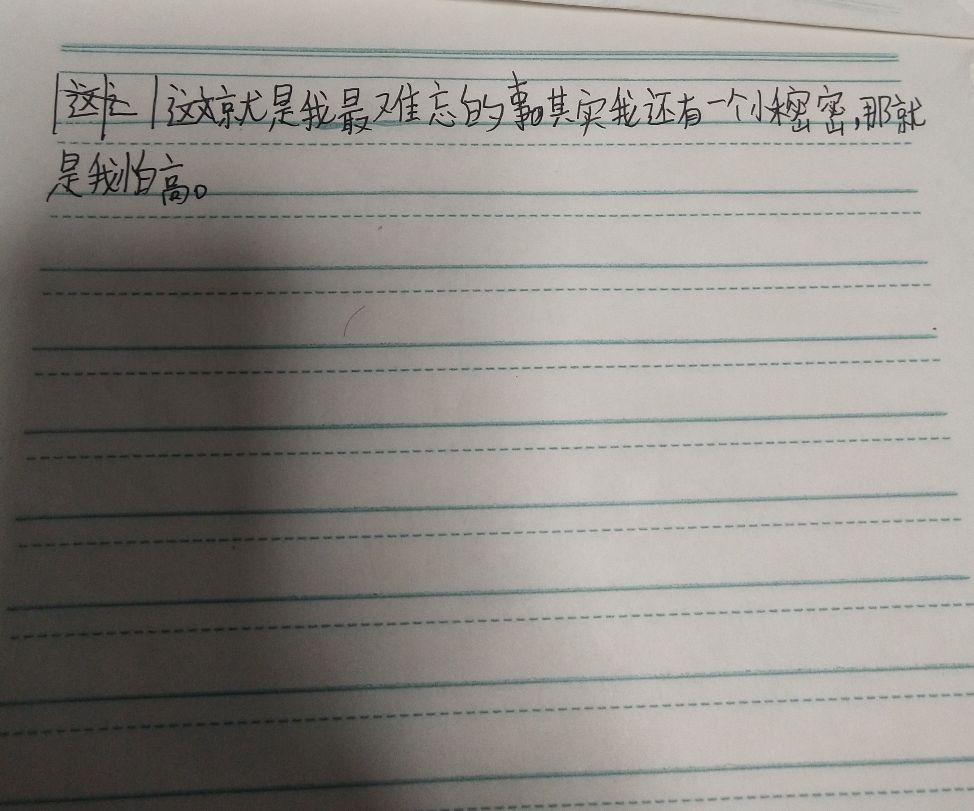 这就是我最难忘的事。其实我还有一个小秘密,那就
是我怕高。